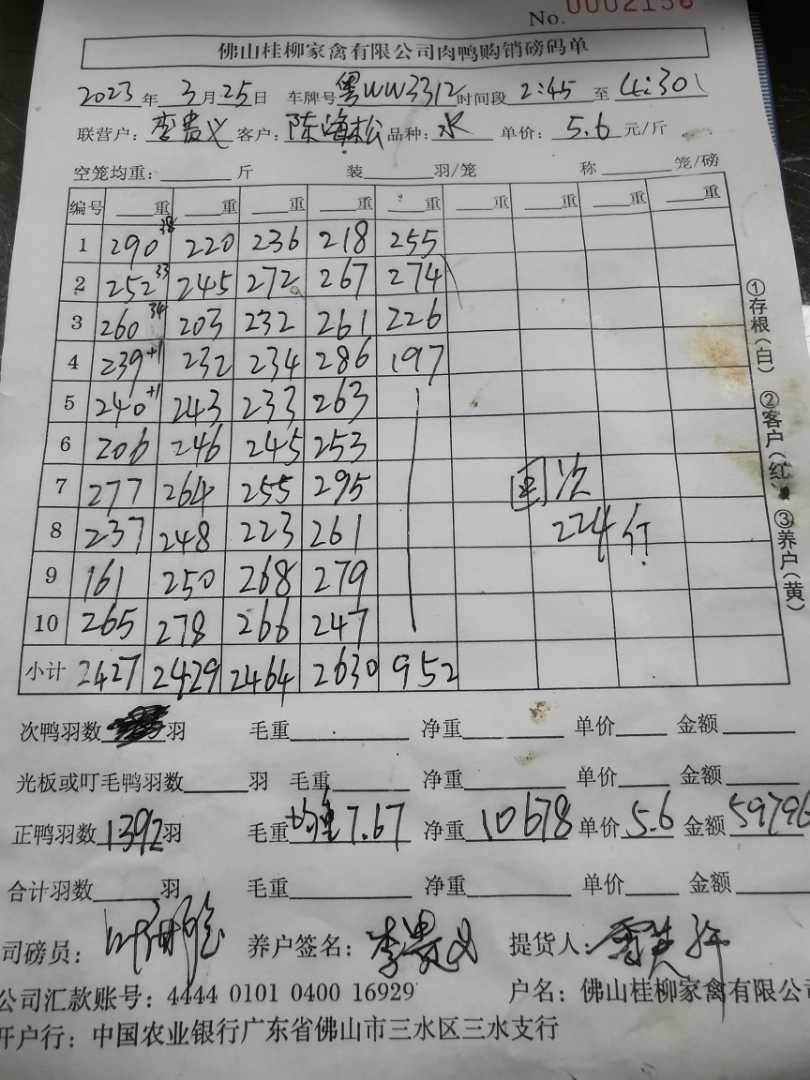 No. 0002156
佛山桂柳家禽有限公司肉鸭购销磅码单
2023 年 3 月 25 日 车牌号 粤WW3312 时间段 2:45 至 4:30
联营户: 李贵义 客户: 陈海松 品种: 水 单价: 5.6 元/斤
空笼均重: 斤 装 羽/笼 称 笼/磅
编号 重 重 重 重 重 重 重 重
1 290 38 220 236 218 255
2 252 33 245 272 267 274
3 260 34 203 232 261 226
4 239 +1 232 234 286 197
5 240 +1 243 233 263
6 206 246 245 253
7 277 264 255 295
8 237 248 223 261
9 161 250 268 279
10 265 278 266 247
小计 2427 2429 2464 2630 952
次
224斤
①存根(白) ②客户(红) ③养户(黄)
次鸭羽数 羽 毛重 净重 单价 金额
光板或叮毛鸭羽数 羽 毛重 净重 单价 金额
正鸭羽数 1392 羽 毛重 均重7.67 净重 10678 单价 5.6 金额 59796
合计羽数 羽 毛重 净重 单价 金额
司磅员: 养户签名: 李贵义 提货人:
公司汇款账号: 4444 0101 0400 16929 户名: 佛山桂柳家禽有限公司
开户行: 中国农业银行广东省佛山市三水区三水支行